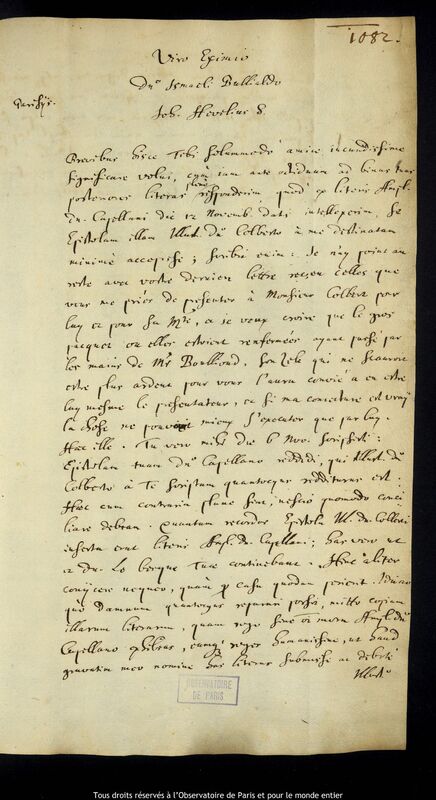 1082.
Viro Eximio
Dno Ismaeli Bullialdo
Parisijs.
Joh. Hevelius S.
Brevibus hisce Tibi solummodo amice jucundissime
significare volui, cum jam ante octiduum ad binas tuas
posteriores literas plene responderim quod ex literis Ampl.
dn. Capellani die 12 Novemb. datis intellexerim, se
Epistolam illam Illust. dno Colberto à me destinatam
minimè accepisse; scribit enim: Je n'ay point au
reste avec vostre derniere lettre receu celles que
vous me priés de presenter à Monsieur Colbert par
luy et pour Sa Mté, et je veux croire que le gros
pacquet ou elles estoient renfermées ayant passé par
les mains de Mr Boulliaud, son zele qui ne scauroit
estre plus ardent pour vous l'aura convié a en estre
luy mesme le presentateur, et si ma coniecture est vraÿ
la chose ne pouvoit mieux s'executer que par luy.
Haec ille. Tu vero mihi die 6 Nov. scripsisti:
Epistolam tuam dno Capellano reddidi, qui Illust. dno
Colberto à Te scriptam quantocyus redditurus est.
Haec cum contraria plane sint, nescio quomodo conci
liare debeam. Quantum recordor Epistola Ill. dn. Colberti
inserta erat literis Ampl. dn. Capellani; has vero
dn. Le Berque Tuae continebant. Hinc aliter
conijcere nequeo, quàm casu quodam perierit. Idcirco
quo damnum quantocyus reparari possit, mitto copiam
illarum literarum, quam rogo sine mora Ampl. dno
Capellano exhibeas, eumque roges humanissime, ut haud
gravatim meo nomine has literas submisse ac debite
Illust.
OBSERVATOIRE
DE PARIS
Tous droits réservés à l'Observatoire de Paris et pour le monde entier